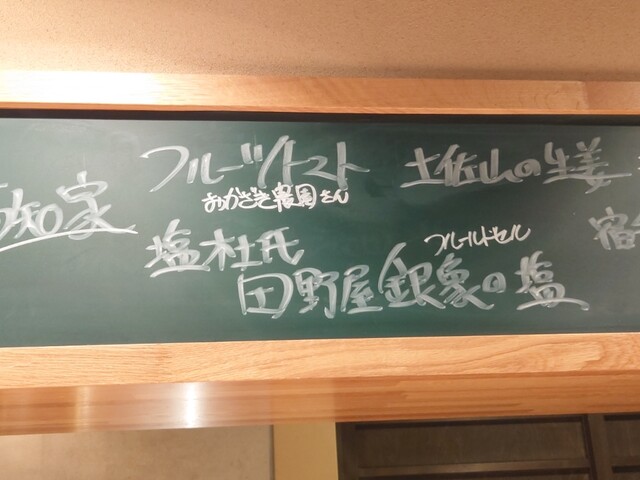 知家
フルーツトマト
おかざき農園さん
土佐山の生姜
塩杜氏
フルールドセル
田野屋銀象の塩
宿